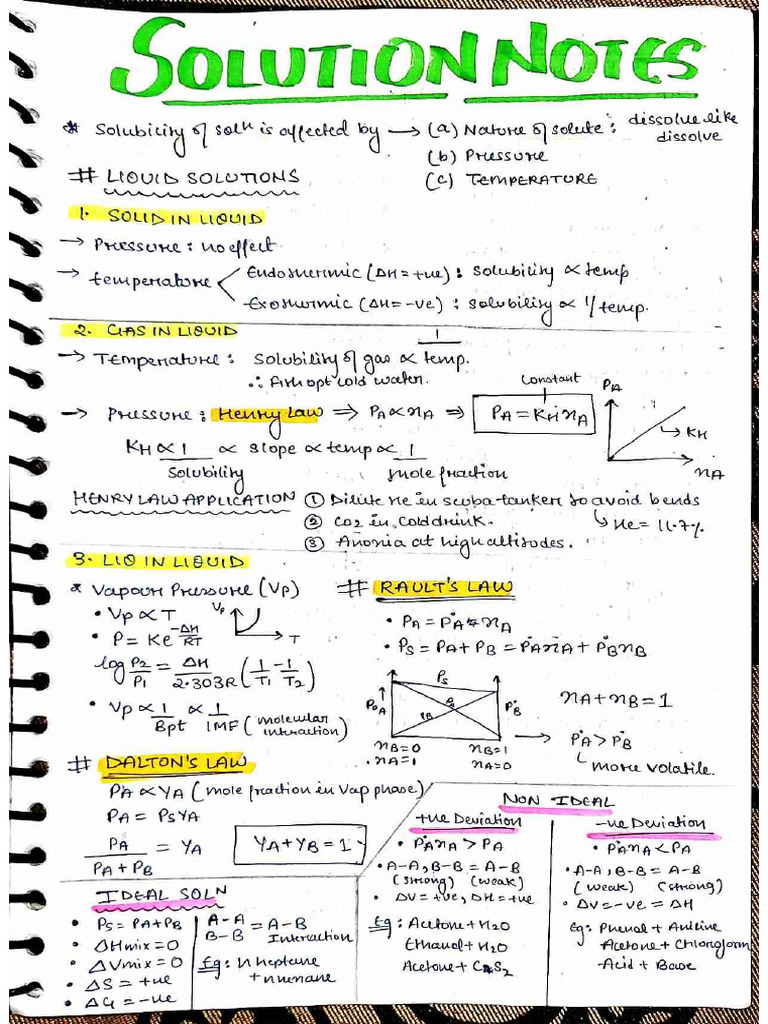 SOLUTION NOTES
* Solubility of soln is affected by → (a) Nature of solute: dissolve like dissolve
(b) Pressure
(c) TEMPERATURE
# LIQUID SOLUTIONS
1. SOLID IN LIQUID
→ Pressure: no effect
→ temperature
Endothermic (ΔH=+ve) : Solubility ∝ temp
Exothermic (ΔH=-ve) : solubility ∝ 1/temp.
2. GAS IN LIQUID
→ Temperature: Solubility of gas ∝ 1/temp.
∴ Fish opt cold water.
→ Pressure: Henry Law ⇒ PA ∝ xA ⇒ PA = KH xA
Constant
PA
KH
xA
KH ∝ 1/Solubility ∝ slope ∝ temp ∝ 1/mole fraction
HENRY LAW APPLICATION ① Dilute He in scuba tanker to avoid bends
He = 11.7%
② CO2 in cold drink.
③ Anoxia at high altitudes.
3. LIQ IN LIQUID
* Vapour Pressure (Vp)
• Vp ∝ T
• P = Ke -ΔH/RT
Vp
T
log P2/P1 = ΔH/2.303R (1/T1 - 1/T2)
• Vp ∝ 1/Bpt ∝ 1/IMF (molecular interaction)
# RAULT'S LAW
• PA = P°A xA
• PS = PA + PB = P°A xA + P°B xB
PS
P°A
PA
PB
P°B
xB=0
xA=1
xB=1
xA=0
xA + xB = 1
→ P°A > P°B
more volatile.
# DALTON'S LAW
PA ∝ YA (mole fraction in Vap phase)
PA = PS YA
PA/PA + PB = YA
YA + YB = 1
IDEAL SOLN
• PS = PA + PB
• ΔHmix = 0
• ΔVmix = 0
• ΔS = +ve
• ΔG = -ve
A-A
B-B = A-B
Interaction
Eg: n heptane
+ n hexane
NON IDEAL
+ve Deviation
• P°A xA > PA
• A-A, B-B = A-B
(strong) (weak)
• ΔV = +ve, ΔH = +ve
Eg: Acetone + H2O
Ethanol + H2O
Acetone + CS2
-ve Deviation
• P°A xA < PA
• A-A, B-B = A-B
(weak) (strong)
• ΔV = -ve = ΔH
Eg: Phenol + Aniline
Acetone + Chloroform
Acid + Base